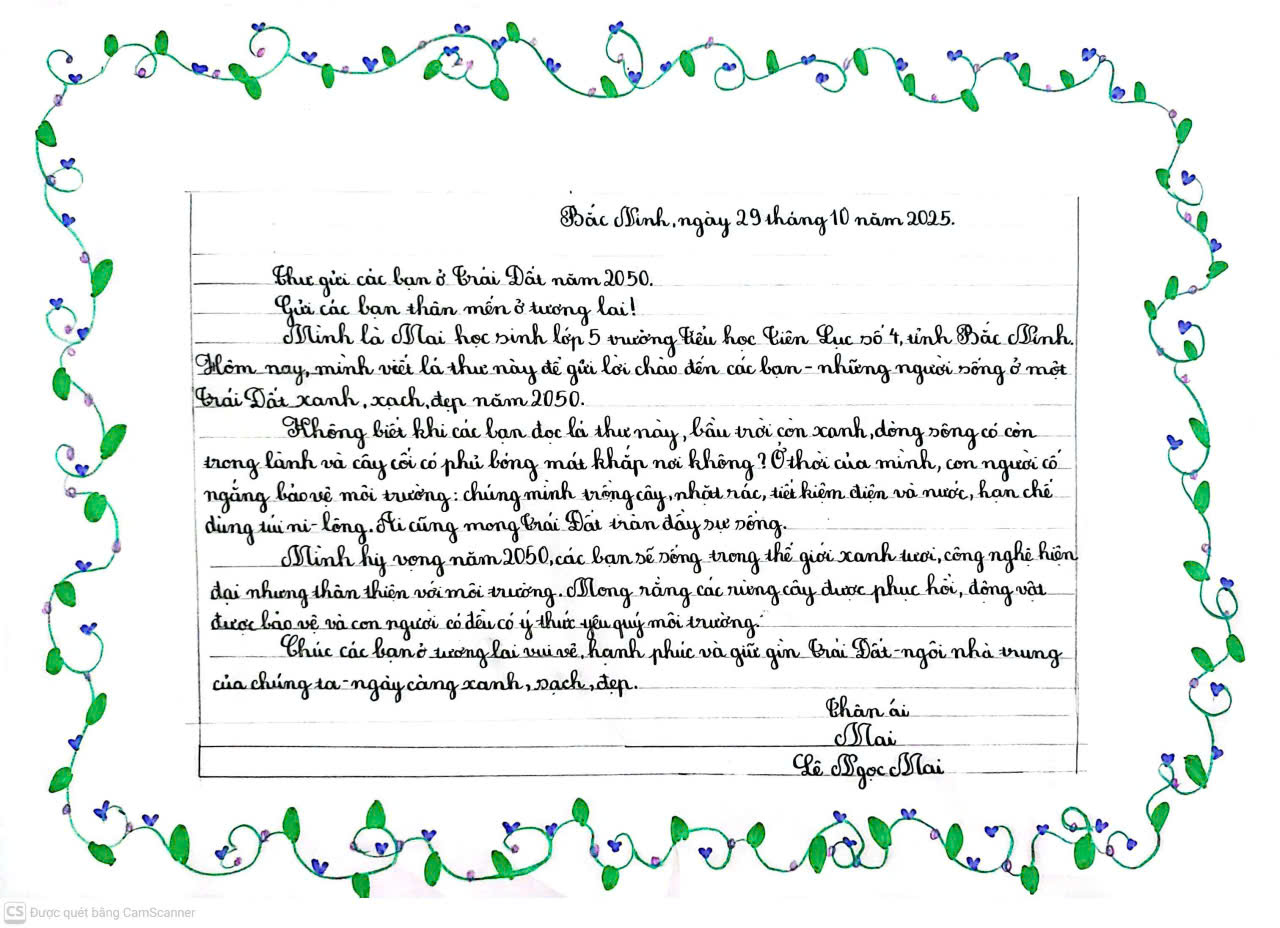 Bắc Ninh, ngày 29 tháng 10 năm 2025.
Thư gửi các bạn ở Trái Đất năm 2050.
Gửi các bạn thân mến ở tương lai!
Mình là Mai học sinh lớp 5 trường Tiểu học Tiên Lục số 4, tỉnh Bắc Ninh.
Hôm nay, mình viết lá thư này để gửi lời chào đến các bạn - những người sống ở một
Trái Đất xanh, xạch, đẹp năm 2050.
Không biết khi các bạn đọc lá thư này, bầu trời còn xanh, dòng sông có còn
trong lành và cây cối có phủ bóng mát khắp nơi không? Ở thời của mình, con người cố
ngắng bảo vệ môi trường: chúng mình trồng cây, nhặt rác, tiết kiệm điện và nước, hạn chế
dùng túi ni-lông. Ai cũng mong Trái Đất tràn đầy sự sống.
Mình hy vọng năm 2050, các bạn sẽ sống trong thế giới xanh tươi, công nghệ hiện
đại nhưng thân thiện với môi trường. Mong rằng các rừng cây được phục hồi, động vật
được bảo vệ và con người có đều có ý thức yêu quý môi trường.
Chúc các bạn ở tương lai vui vẻ, hạnh phúc và giữ gìn Trái Đất - ngôi nhà trung
của chúng ta - ngày càng xanh, sạch, đẹp.
Thân ái
Mai
Lê Ngọc Mai
CS Được quét bằng CamScanner